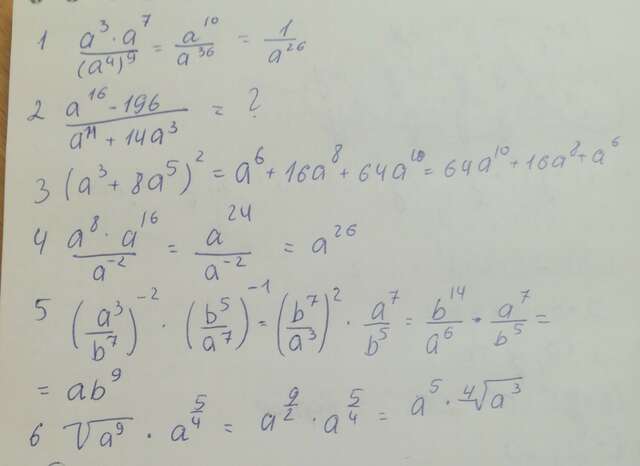 1 (a³·a⁷)/(a⁴)⁹ = a¹⁰/a³⁶ = 1/a²⁶
2 (a¹⁶-196)/(a¹¹+14a³) = ?
3 (a³+8a⁵)² = a⁶+16a⁸+64a¹⁰ = 64a¹⁰+16a⁸+a⁶
4 (a⁸·a¹⁶)/a⁻² = a²⁴/a⁻² = a²⁶
5 (a³/b⁷)⁻² · (b⁵/a⁷)⁻¹ = (b⁷/a³)² · a⁷/b⁵ = b¹⁴/a⁶ · a⁷/b⁵ =
= ab⁹
6 √a⁹ · a^(5/4) = a^(9/2) · a^(5/4) = a⁵ · ⁴√a³